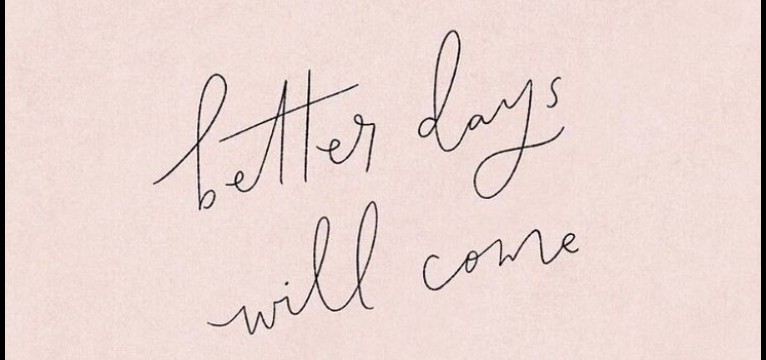 better days
will come